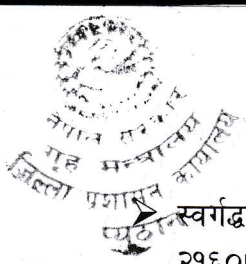 नेपाल सरकार
गृह मन्त्रालय
जिल्ला प्रशासन कार्यालय
प्यूठान
स्वर्गद्व